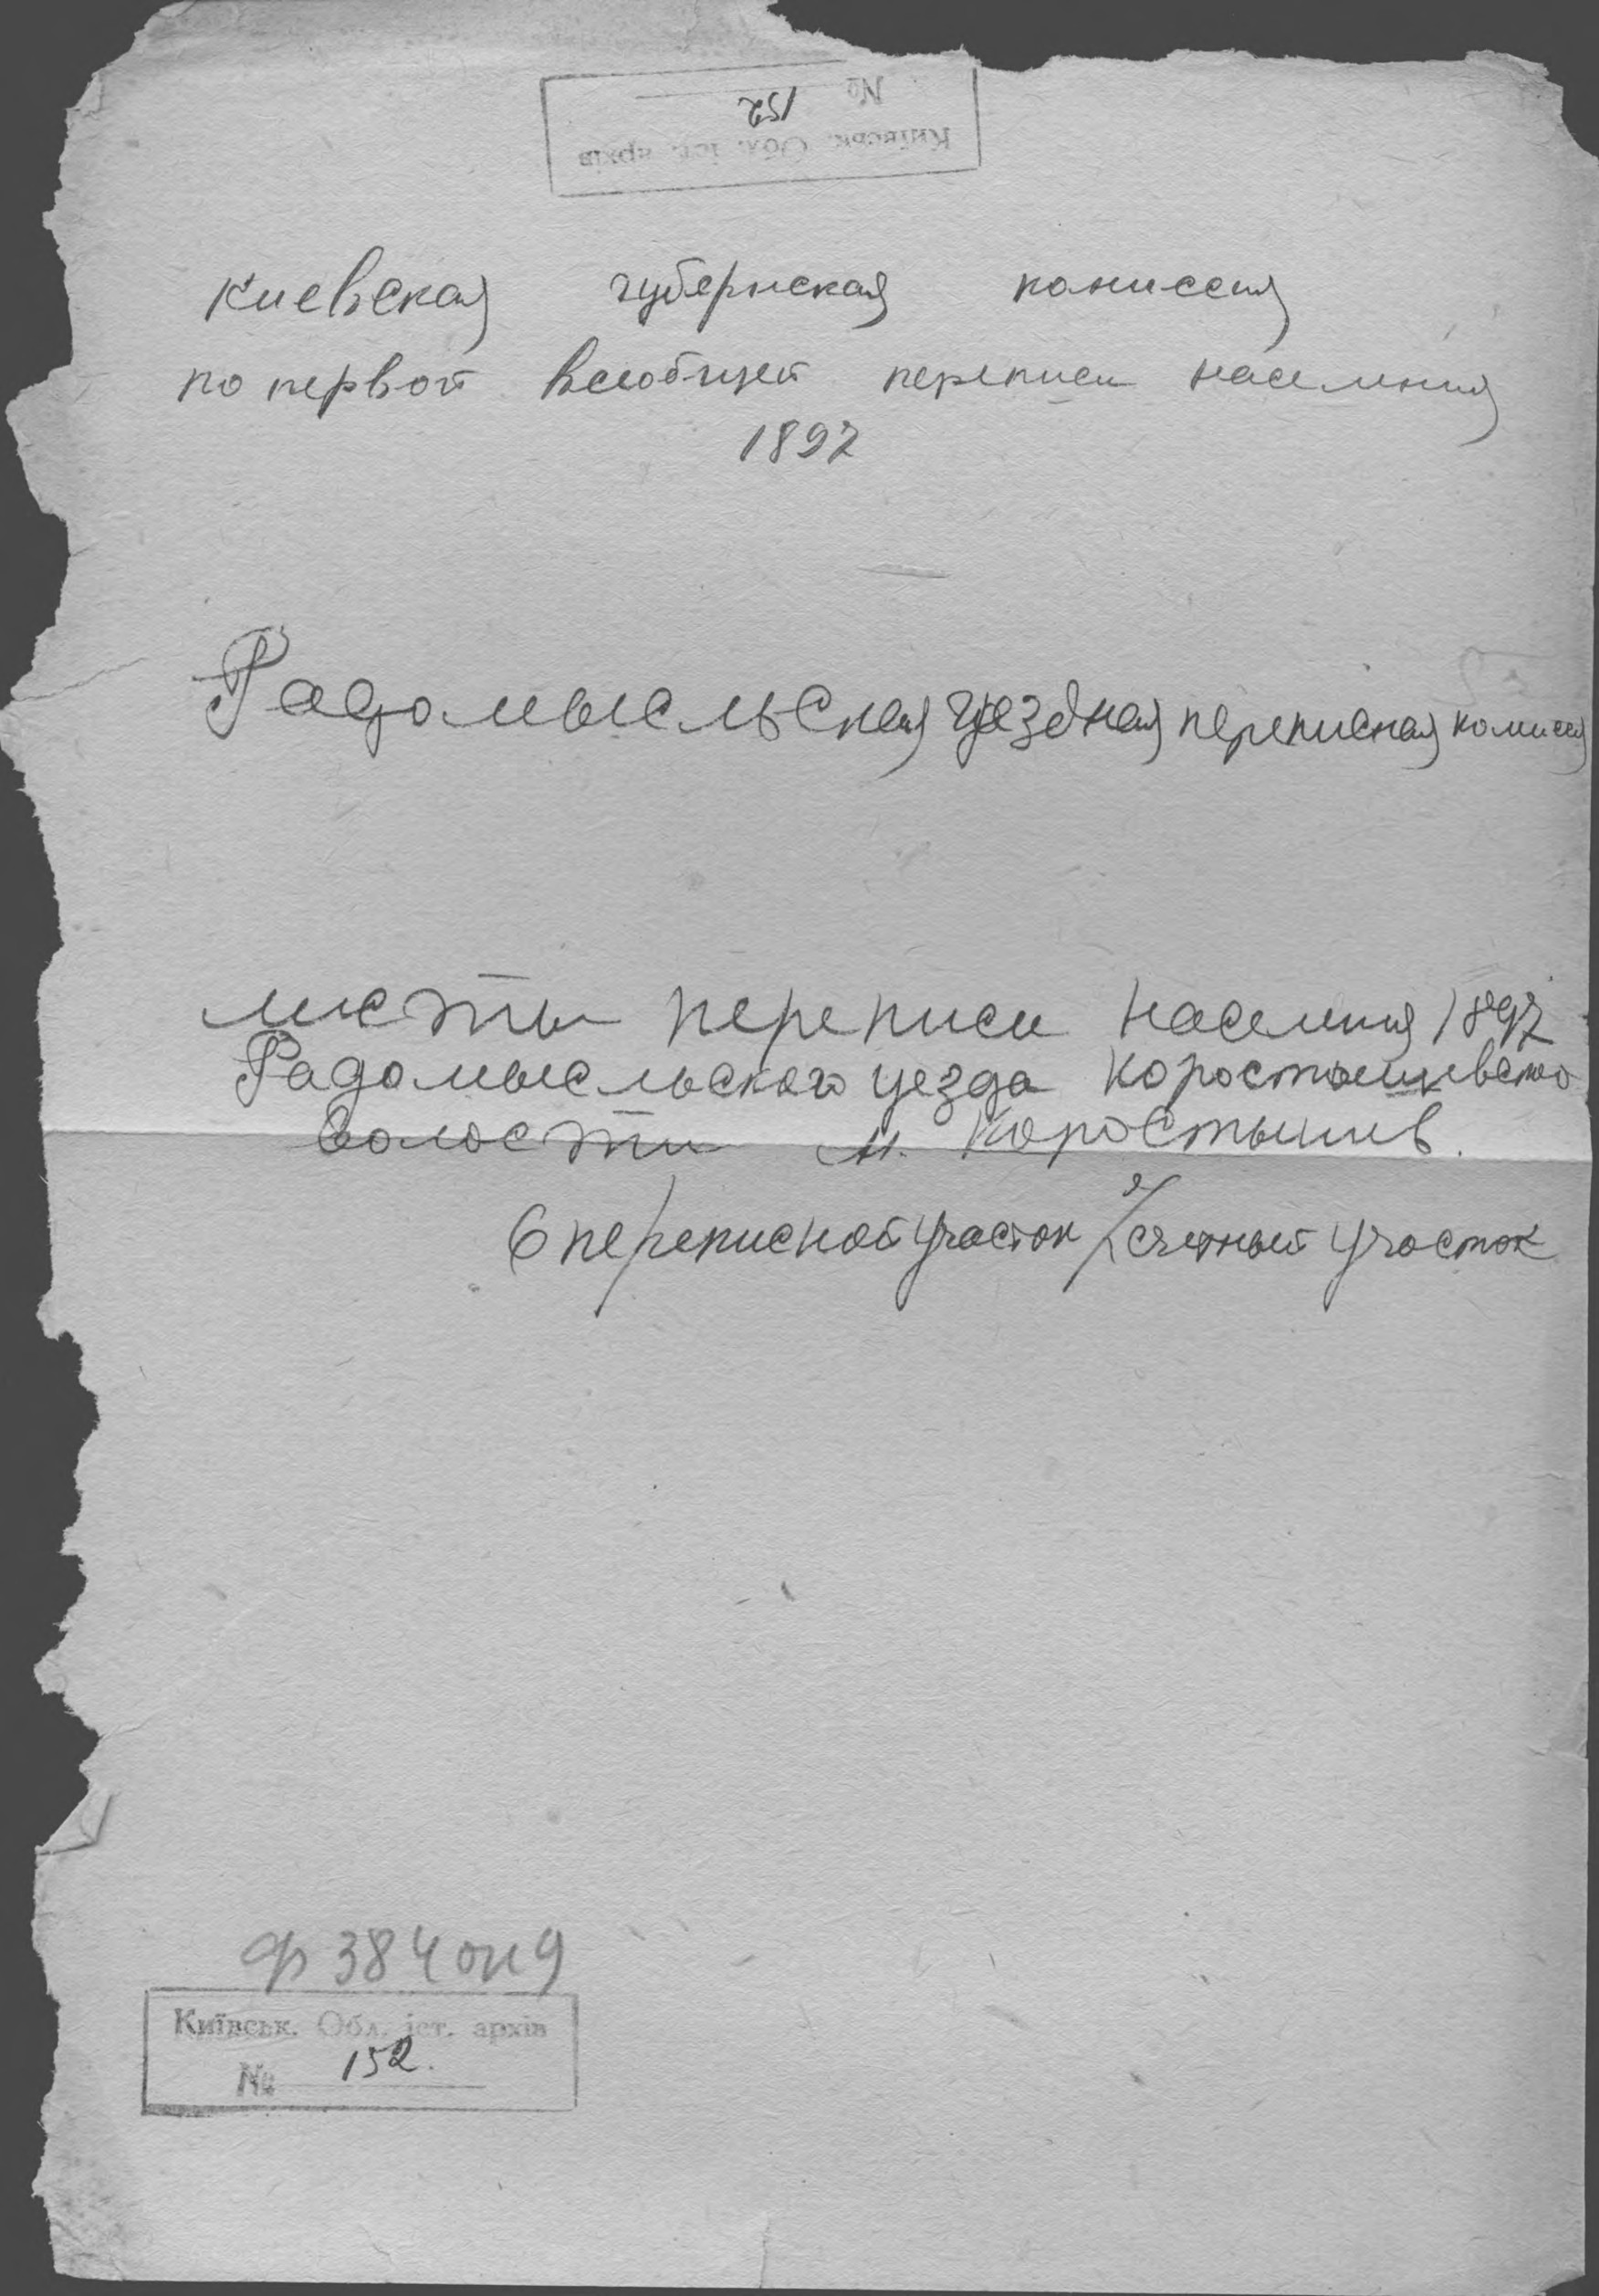 № 152
Київськ. Обл. іст. архів
Киевская губернская комиссия
по первой всеобщей переписи населения
1897
Радомысльская уездная переписная комиссия
листы переписи населения 1897
Радомысльского уезда Коростышевского
волости м. Коростышев.
6 переписной участок / счетный участок
ф 384 оп 9
Київськ. Обл. іст. архів
№ 152.